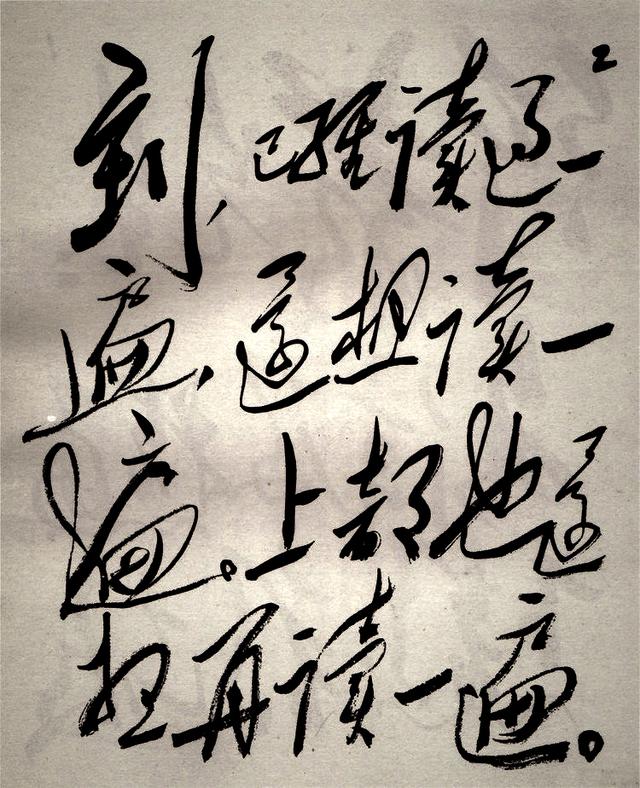 2
到，已経读过一
遍，还想读一
遍。上部也还
想再读一遍。